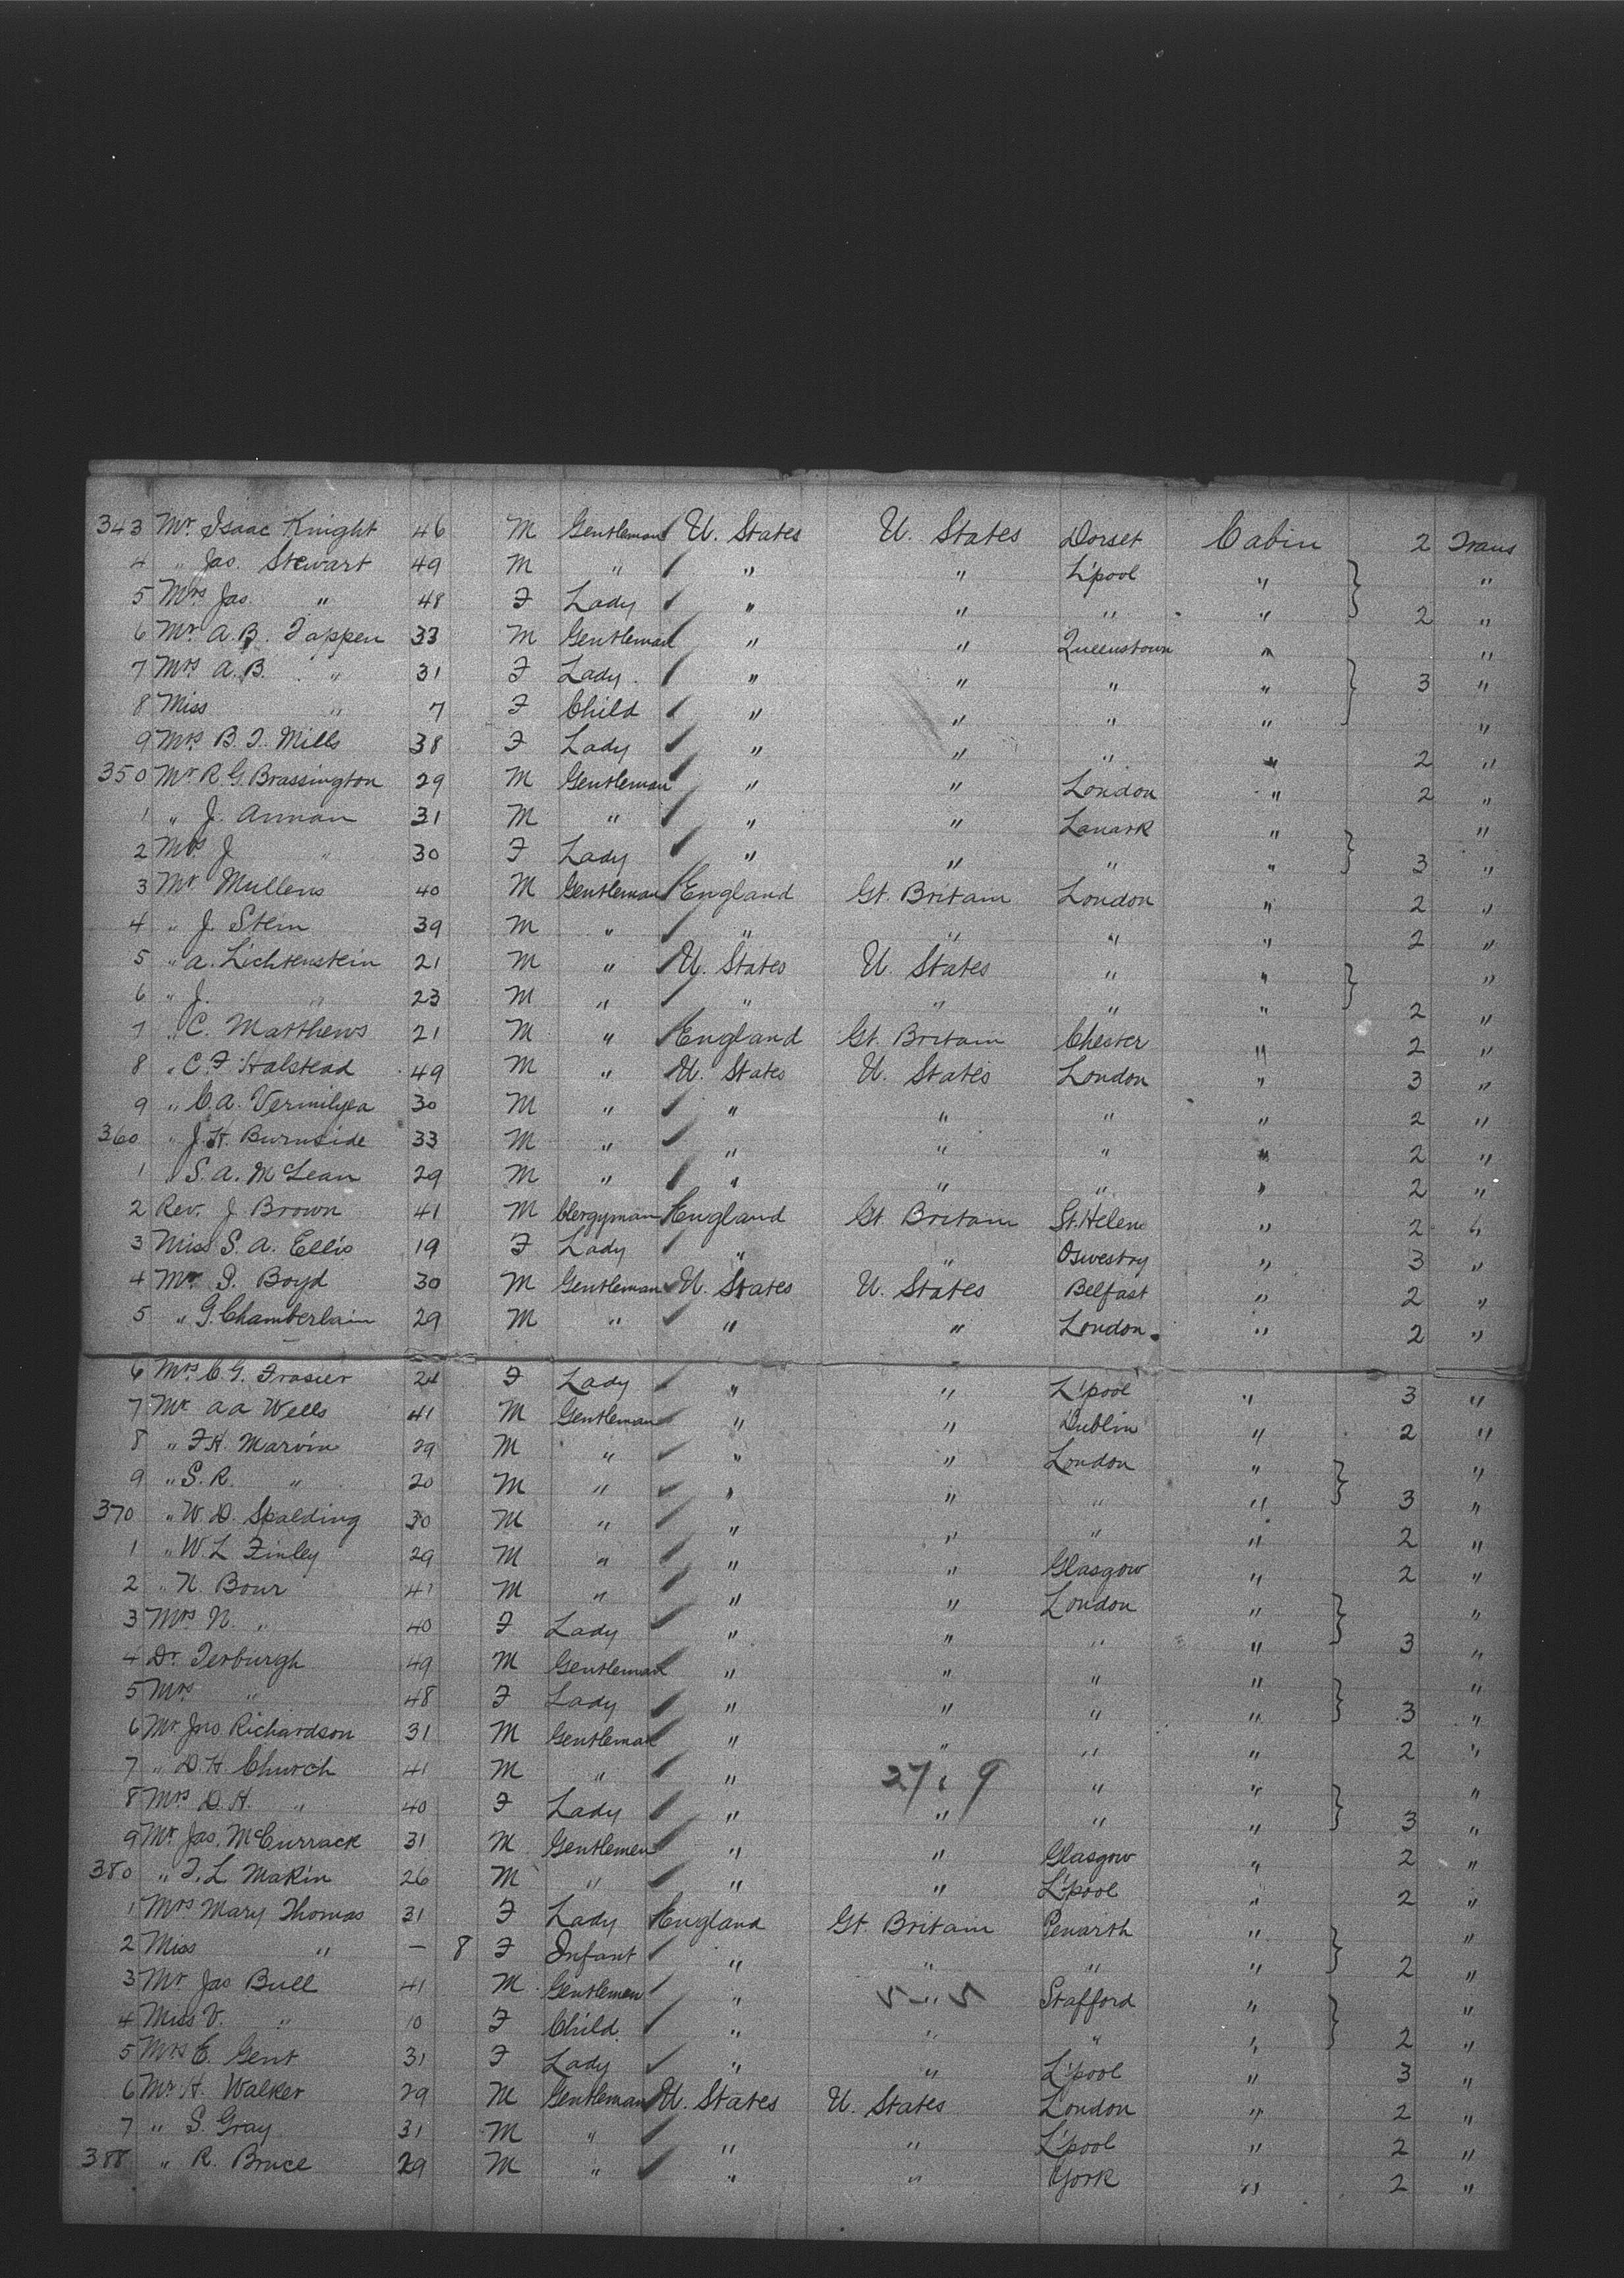 343 Mr. Isaac Knight 46 M Gentleman U. States U. States Dorset Cabin 2 Trans
4 " Jas. Stewart 49 M " " " L'pool " "
5 Mrs Jas. " 48 F Lady " " " " 2 "
6 Mr A.B. Tappen 33 M Gentleman " " Queenstown " "
7 Mrs A.B. " 31 F Lady " " " " 3 "
8 Miss " 7 F Child " " " " "
9 Mrs B.T. Mills 38 F Lady " " " " 2 "
350 Mr R.G. Brassington 29 M Gentleman " " London " 2 "
1 " J. Annan 31 M " " " Lanark " "
2 Mrs J " 30 F Lady " " " " 3 "
3 Mr Mullens 40 M Gentleman England Gt. Britain London " 2 "
4 " J Stern 39 M " " " " " 2 "
5 " A. Lichtenstein 21 M " U. States U. States " " "
6 " J. " 23 M " " " " " 2 "
7 " C. Matthews 21 M " England Gt. Britain Chester " 2 "
8 " C.F. Halstead 49 M " U. States U. States London " 3 "
9 " C.A. Vermilyea 30 M " " " " " 2 "
360 " J.H. Burnside 33 M " " " " " 2 "
1 " S.A. McLean 29 M " " " " " 2 "
2 Rev. J. Brown 41 M Clergyman England Gt. Britain St. Helens " 2 "
3 Miss S.A. Ellis 19 F Lady " " Oswestry " 3 "
4 Mr. I. Boyd 30 M Gentleman U. States U. States Belfast " 2 "
5 " G. Chamberlain 29 M " " " London " 2 "
6 Mrs C.G. Frasier 24 F Lady " " L'pool " 3 "
7 Mr AA Wells 41 M Gentleman " " Dublin " 2 "
8 " F.H. Marvin 29 M " " " London " "
9 " S.R. " 20 M " " " " " 3 "
370 " W.D. Spalding 30 M " " " " " 2 "
1 " W.L Finley 29 M " " " Glasgow " 2 "
2 " N. Bour 41 M " " " London " "
3 Mrs N. " 40 F Lady " " " " 3 "
4 Dr. Terburgh 49 M Gentleman " " " " "
5 Mrs " 48 F Lady " " " " 3 "
6 Mr Jno. Richardson 31 M Gentleman " " " " 2 "
7 " D.H. Church 41 M " " " " "
8 Mrs D.H. " 40 F Lady " " " " 3 "
9 Mr. Jas. McCurrack 31 M Gentlemen " " Glasgow " 2 "
380 " T.L Makin 26 M " " " L'pool " 2 "
1 Mrs Mary Thomas 31 F Lady England Gt. Britain Penarth " "
2 Miss " — 8 F Infant " " " " 2 "
3 Mr Jas Bull 41 M Gentlemen " " Stafford " "
4 Miss V. " 10 F Child " " " " 2 "
5 Mrs E. Gent 31 F Lady " " L'pool " 3 "
6 Mr H. Walker 29 M Gentleman U. States U. States London " 2 "
7 " S. Gray 31 M " " " L'pool " 2 "
388 " R. Bruce 29 M " " " York " 2 "